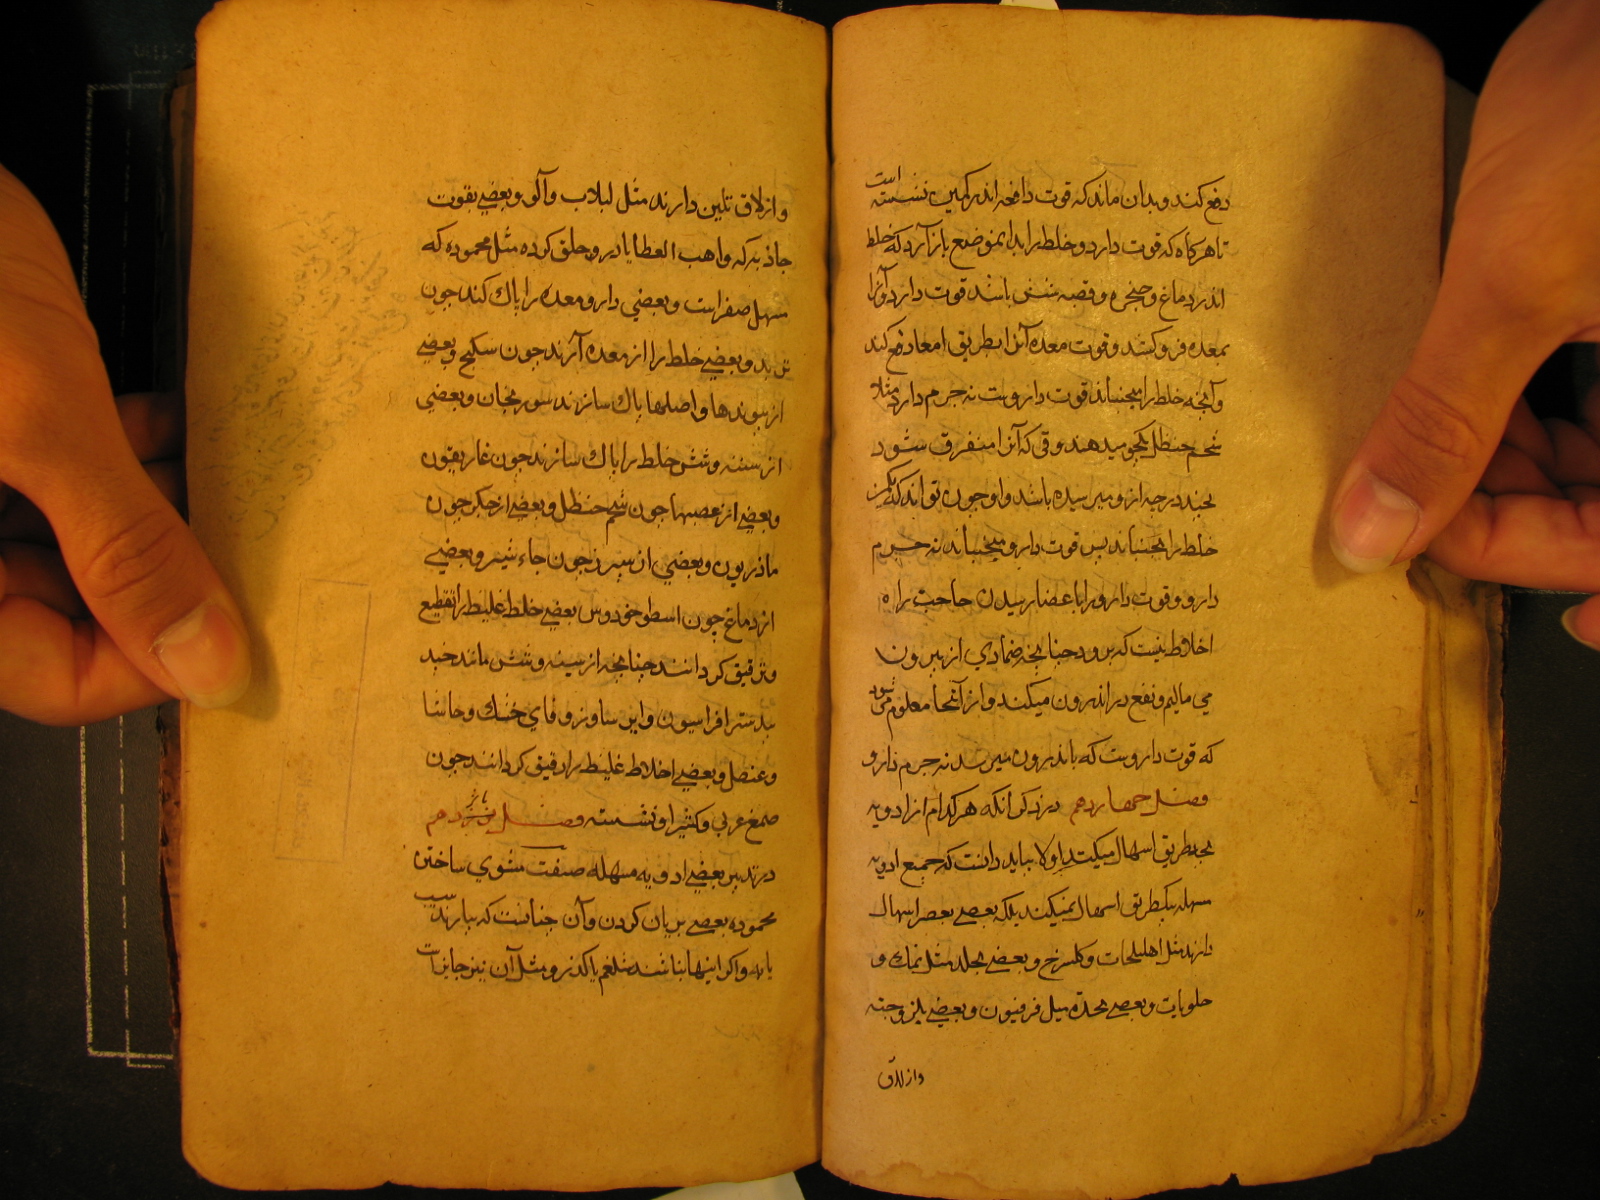 دفع کند و بدان ماند که قوت دافعه اندر کمین نشسته است
تا هر کاه که قوت دارو خلط را بدانموضع باز آرد که خلط
اندر دماغ و حنجره و قصبه شش باشد قوت دارو آنرا
بمعده فرو کشد و قوت معده آنرا بطریق امعا دفع کند
و آنچه خلط را بجنباند قوت داروست نه جرم دارو مثلا
شحم حنظل یکجو میدهند وقتی که آن را متفرق شود
بچند درجه از و میرسیده باشد و او چون تواند که
خلط را بجنباند پس قوت دارو میجنباند نه جرم
دارو و قوت دارو را باعضا رسیدن حاجت راه
اخلاط نیست که برود چنانچه ضمادی از بیرون
می مالیم و نفع در اندرون میکند و از آنجا معلوم می شود
که قوت داروست که باندرون میرسد نه جرم دارو
فصل چهاردهم در ذکر آنکه هر کدام از ادویه
بچه طریق اسهال میکنند اولا بباید دانست که جمیع ادویه
مسهله بیکطریق اسهال نمیکنند بلکه بعضی بعصر اسهال
دارند مثل اهلیلجات و کلسرخ و بعضی بجلد مثل نمک و
حلویات و بعضی بحدّه مثل فرفیون و بعضی بلزوجته
وازلاق
و ازلاق تلیین دارند مثل لبلاب و آلو و بعضی بقوت
جاذبه که واهب العطایا درو خلق کرده مثل محموده که
مسهل صفراست و بعضی دارو معده را پاک کند چون
تربد و بعضی خلط را از معده آرند چون سکبنج و بعضی
از پیوندها و اصلها پاک سازند سورنجان و بعضی
از سینه و شش خلط را پاک سازند چون غاریقون
و بعضی از عصبها چون شحم حنظل و بعضی از جکر چون
ماذریون و بعضی از سپرز چون جاءشیر و بعضی
از دماغ چون اسطوخودوس بعضی خلط غلیظ را تقطیع
و ترقیق کردانند چنانچه از سینه و شش مانند جند
بیدستر افراسیون و ایرسا و زوفای خشک و حاشا
و عنصل و بعضی اخلاط غلیظ را رقیق کردانند چون
صمغ عربی و کثیرا و نشسته فصل پانزدهم
در تدبیر بعضی ادویه مسهله صنفت مشوی ساختن
محموده بعضی بریان کردن و آن چنانست که بیارند سیب
یا به و اکر اینها نباشند شلغم یا کذر و مثل آن نیز جایزاست